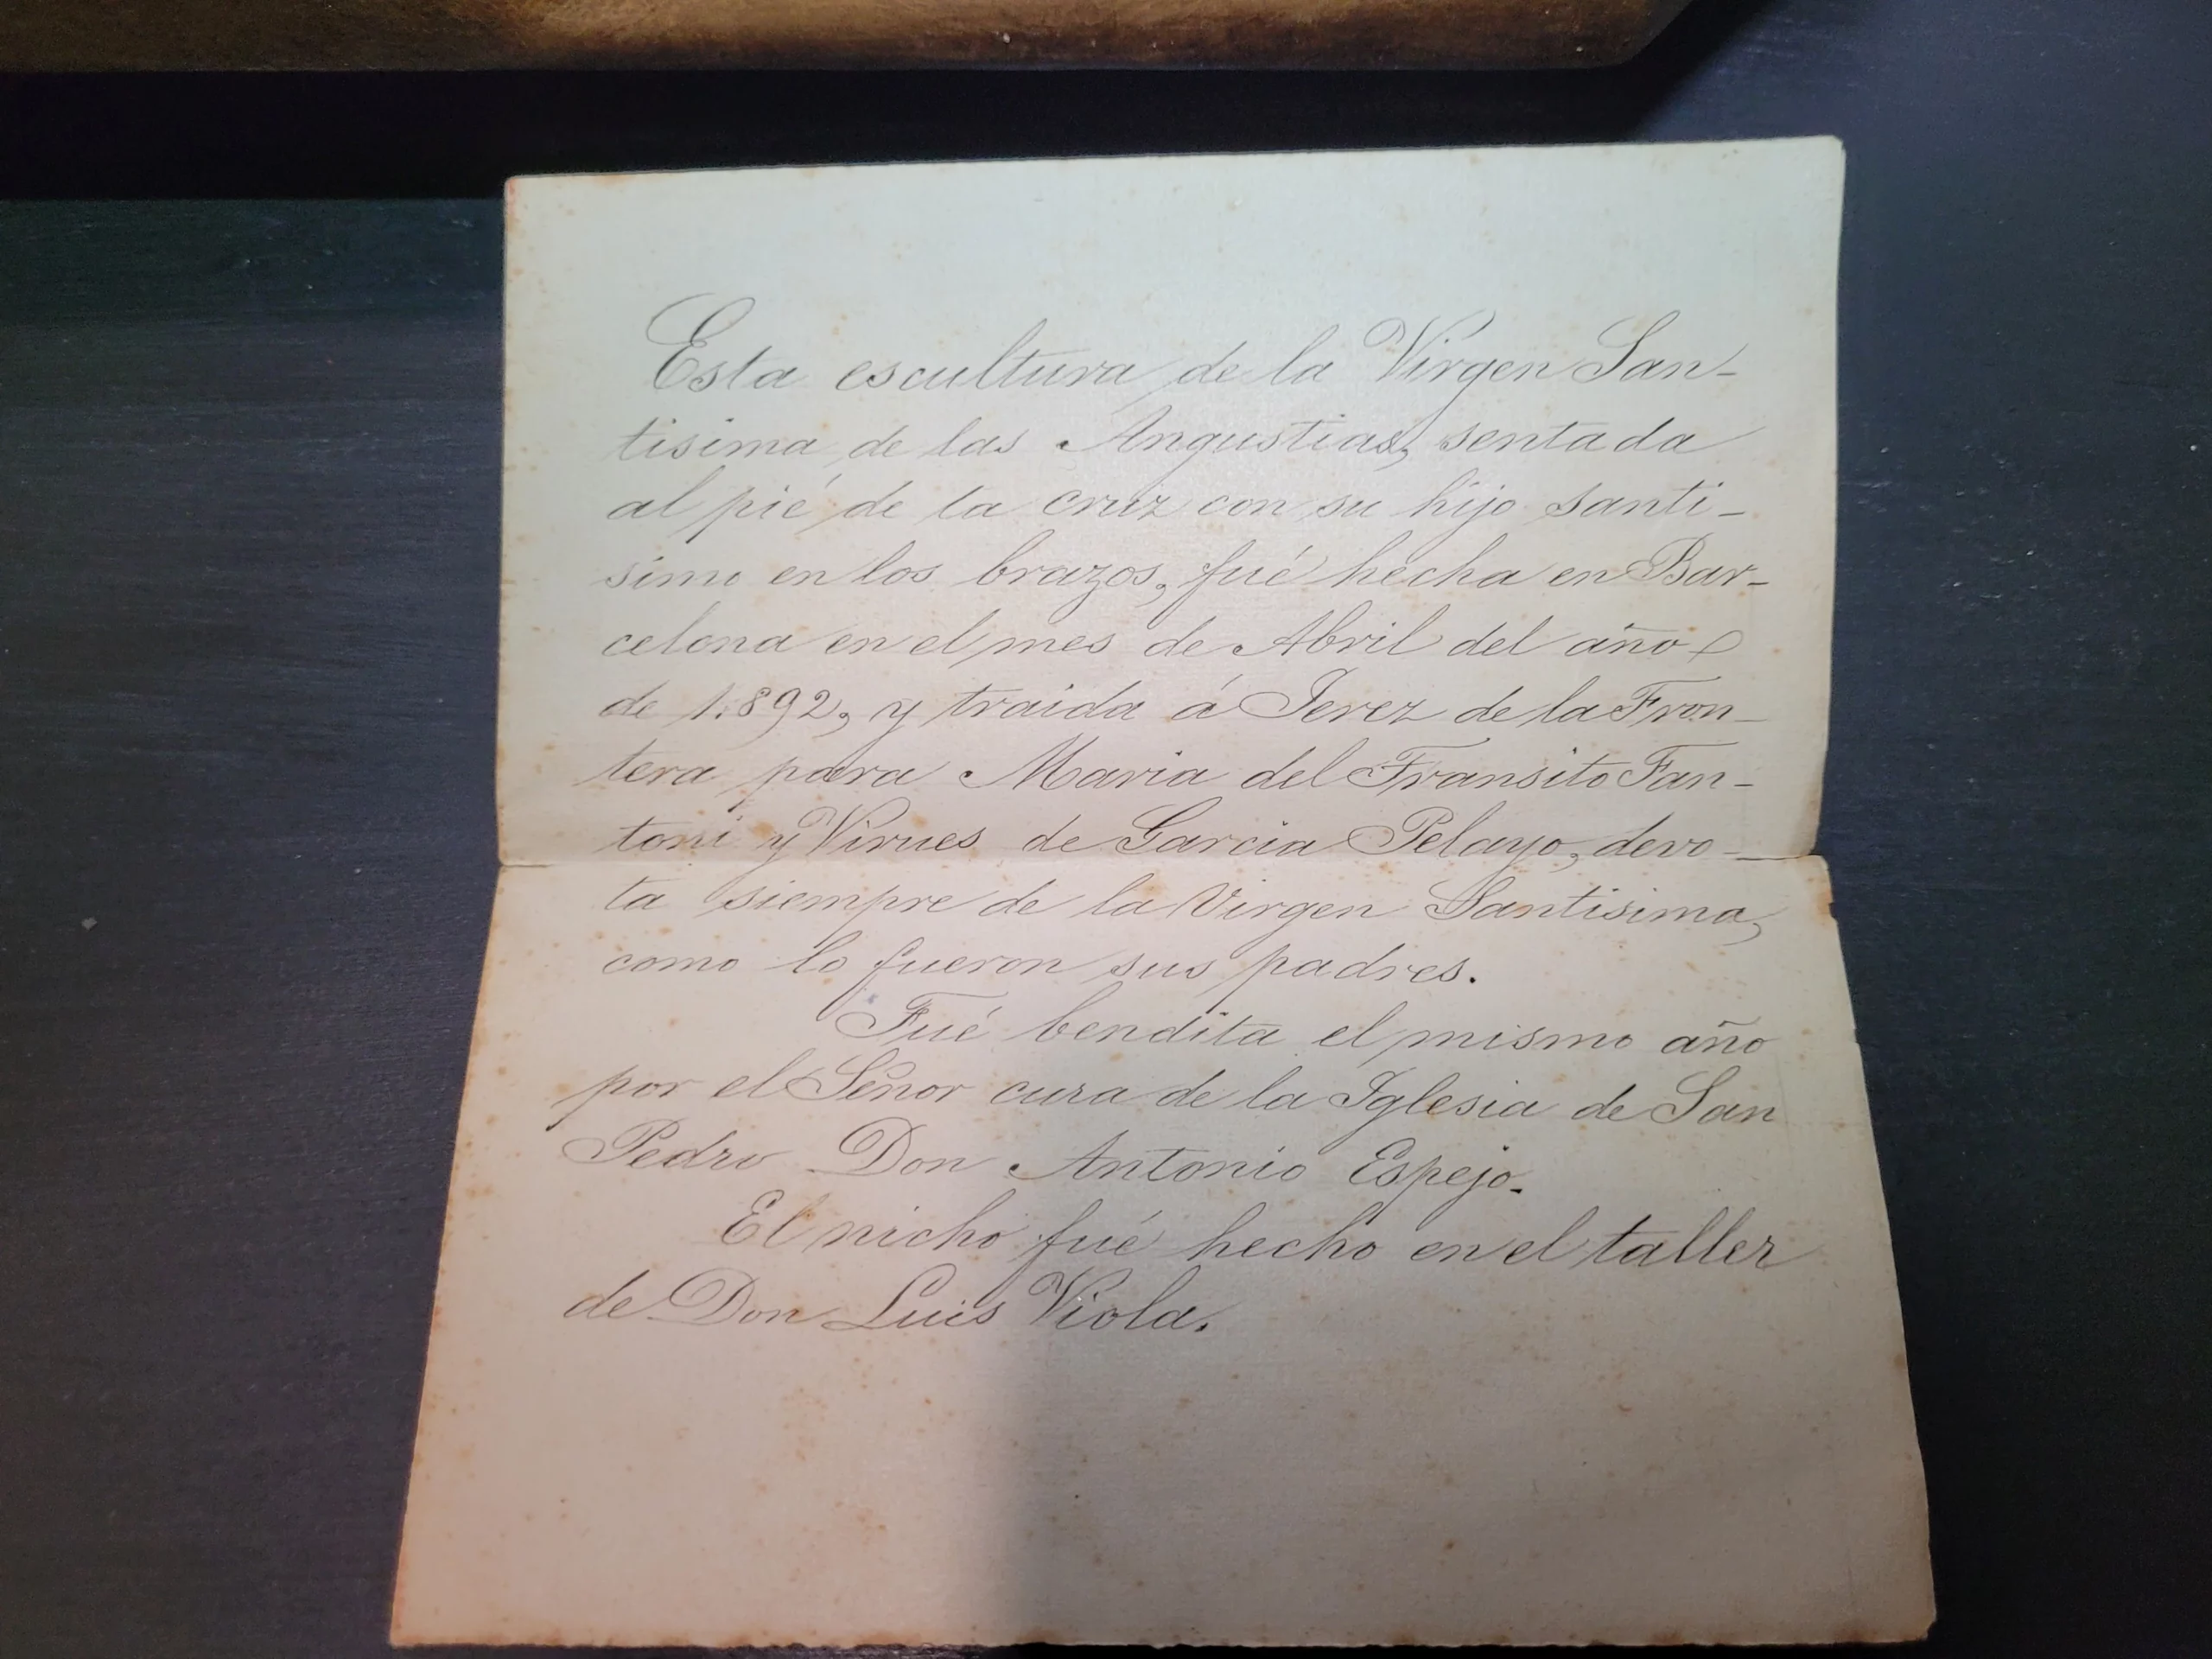 Esta escultura de la Virgen San-
tisima de las Angustias, sentada
al pié de la cruz con su hijo santi-
simo en los brazos, fué hecha en Bar-
celona en el mes de Abril del año
de 1.892, y traida á Jerez de la Fron-
tera para Maria del Transito Fan-
toni y Virues de Garcia Pelayo, devo-
ta siempre de la Virgen Santisima,
como lo fueron sus padres.
Fué bendita el mismo año
por el Señor cura de la Iglesia de San
Pedro Don Antonio Espejo.
El nicho fué hecho en el taller
de Don Luis Viola.